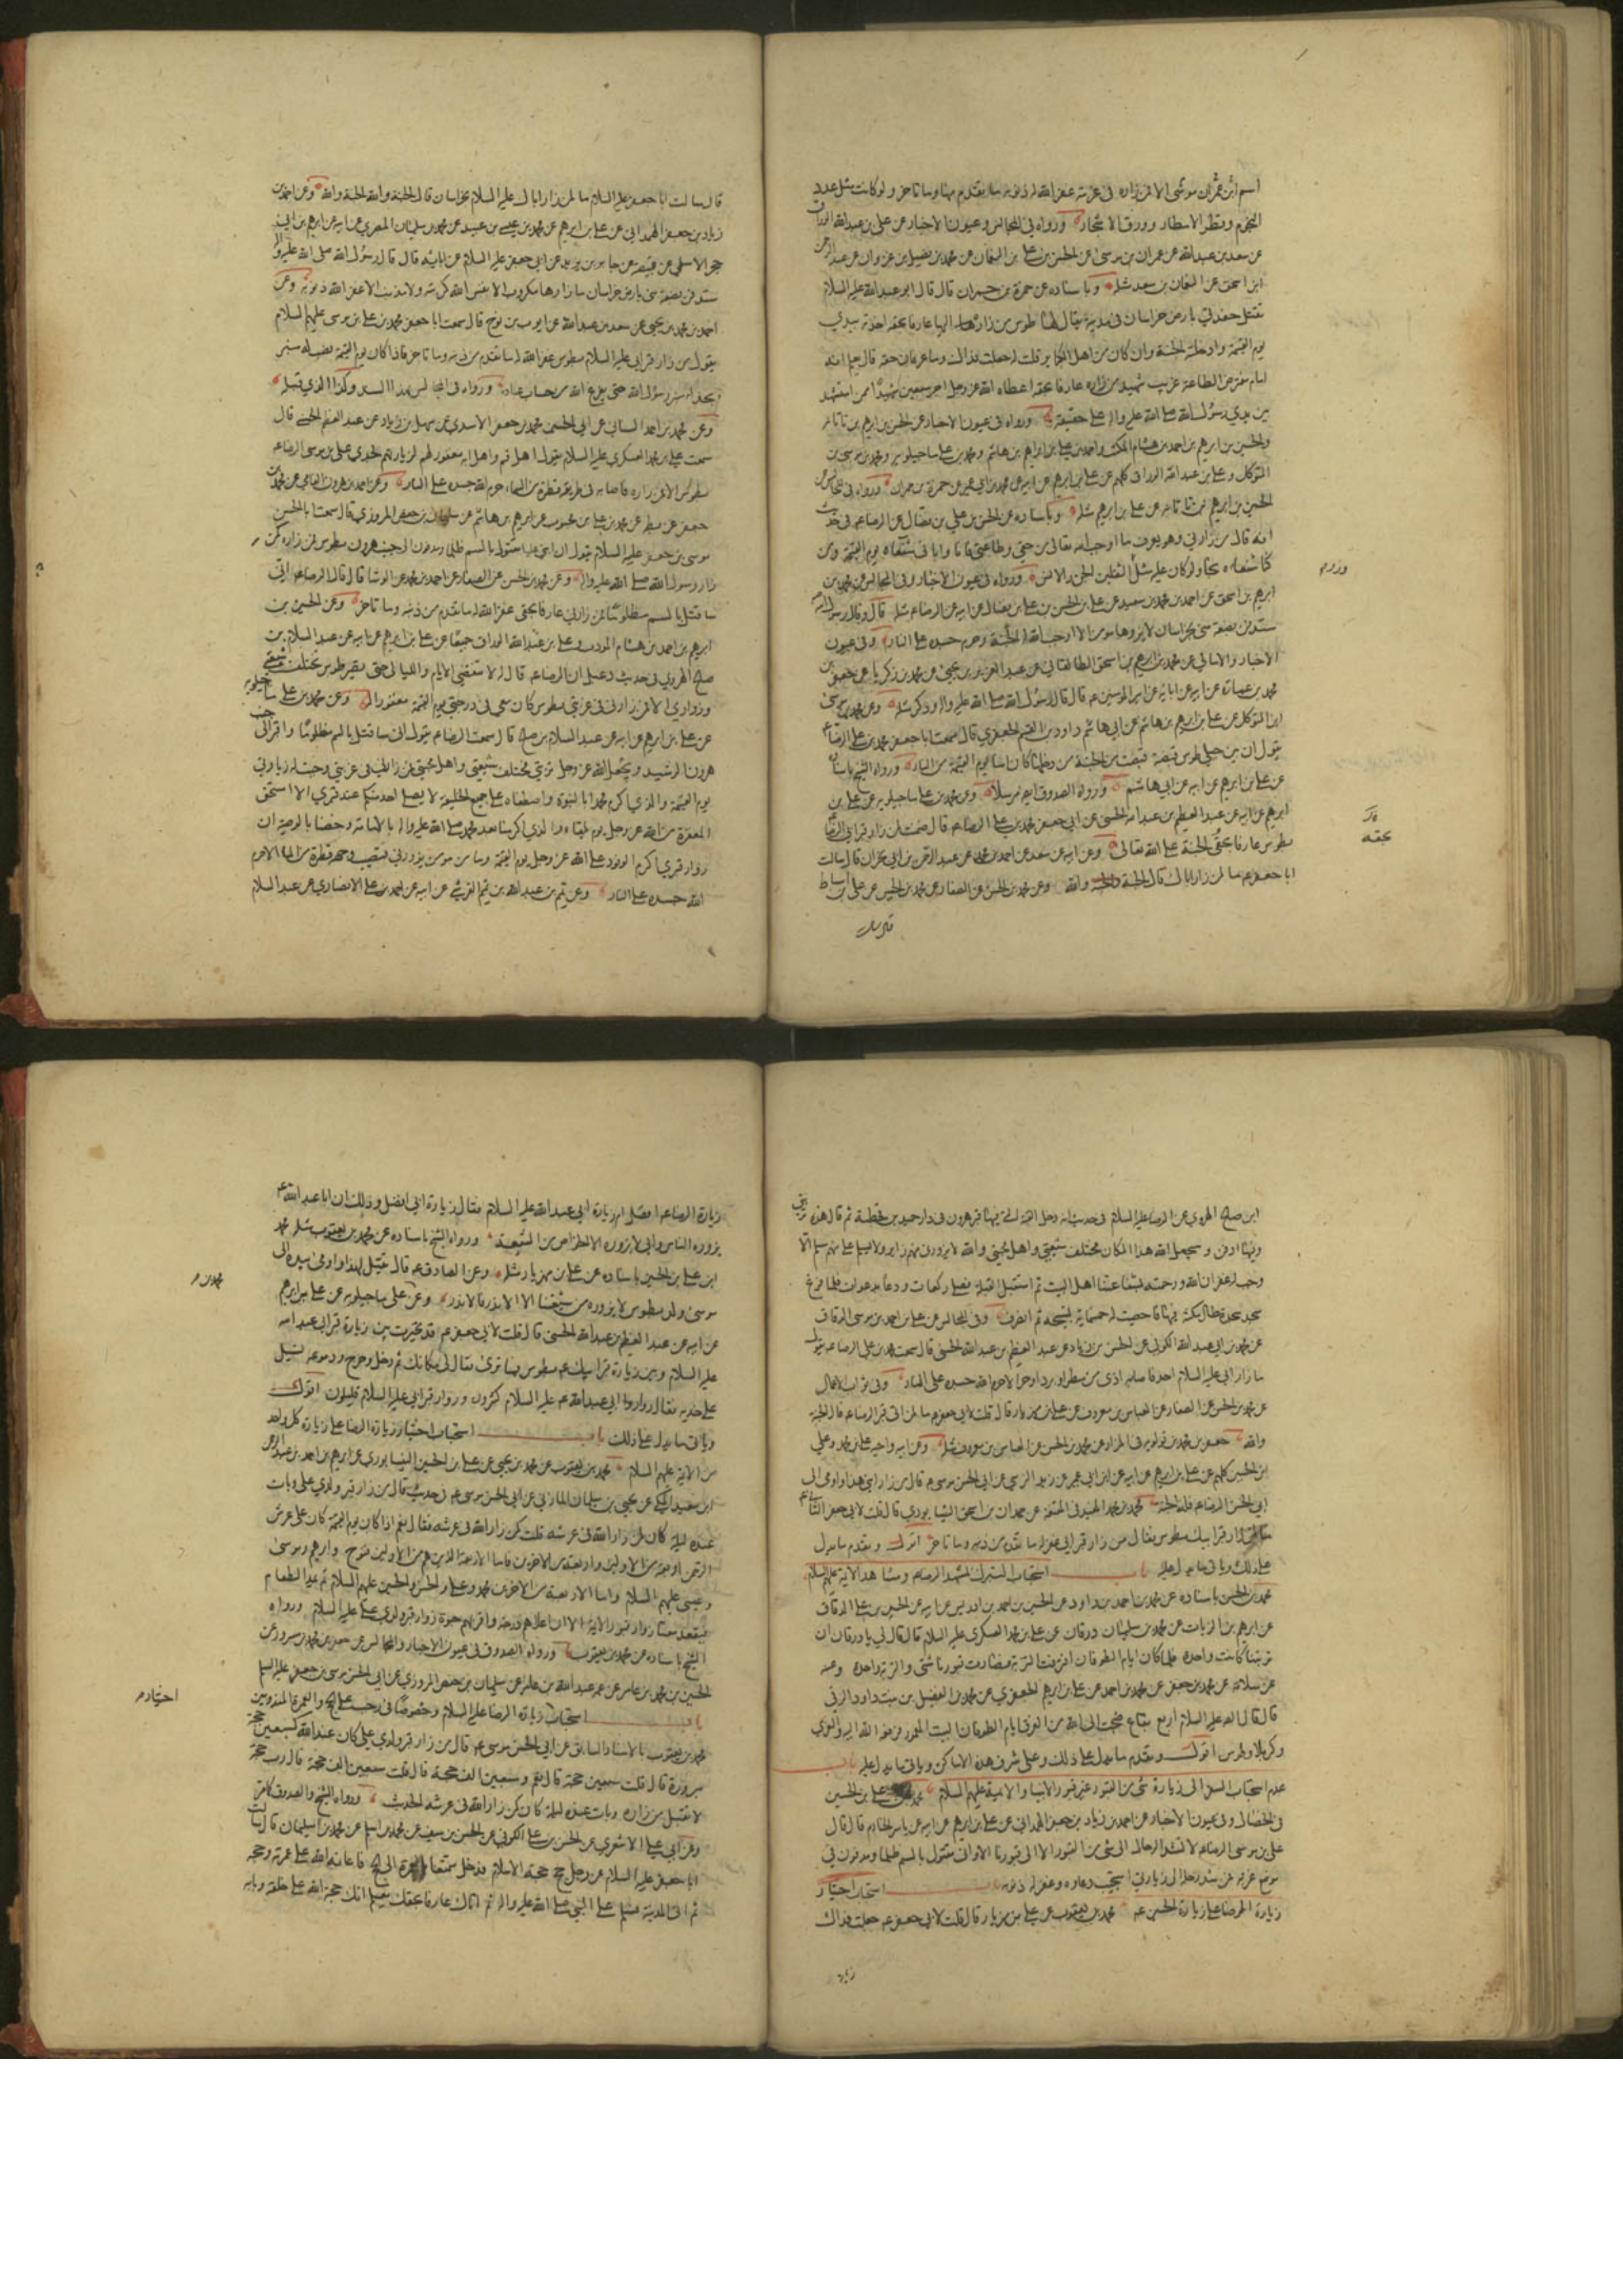 اسم ابن عمران موسى الا فمن زاره في غربته غفر الله له ذنوبه ما تقدم منها وما تاخر ولو كانت مثل عدد
النجوم وقطر الامطار وورق الاشجار ورواه في المجالس وعيون الاخبار عن علي بن عبدالله الوراق
عن سعد بن عبدالله عن عمران بن موسى عن الحسن بن علي بن النعمان عن محمد بن فضيل بن غزوان عن عبد الرحمن
ابن اسحق عن النعمان بن سعد مثله وباسناده عن حمزة بن حمران قال قال ابو عبدالله عليه السلام
تقتل حفدتي بارض خراسان في مدينة يقال لها طوس من زاره اليها عارفا بحقه اخذته بيدي
يوم القيمة وادخلته الجنة وان كان من اهل الكبائر قلت له جعلت فداك وما عرفان حقه قال يعلم انه
امام مفترض الطاعة غريب شهيد من زاره عارفا بحقه اعطاه الله عزوجل اجر سبعين شهيدا ممن استشهد
بين يدي رسول الله صلى الله عليه واله على حقيقة ورواه في عيون الاخبار عن الحسين بن ابرهيم بن ناتانه
والحسين بن ابرهيم بن احمد بن هشام المكتب واحمد بن علي بن ابراهيم بن هاشم ومحمد بن علي ماجيلويه ومحمد بن موسى بن
المتوكل وعلي بن عبد الله الوراق كلهم عن علي بن ابرهيم عن ابيه عن محمد بن ابي عمير عن حمزة بن حمران ورواه في المجالس عن
الحسين بن ابرهيم بن ناتانه عن علي بن ابرهيم مثله وباسناده عن الحسن بن علي بن فضال عن الرضا ع في حديث
انه قال من زارني وهو يعرف ما اوجب الله تعالى من حقي وطاعتي فانا وابائي شفعاؤه يوم القيمة ومن
كنا شفعاءه نجا ولو كان عليه مثل الثقلين الجن والانس ورواه في عيون الاخبار وفي المجالس عن محمد بن
ابرهيم بن اسحق عن احمد بن محمد بن سعيد عن علي بن الحسن بن علي بن فضال عن ابيه عن الرضا ع مثله قال وقال رسول الله ص
ستدفن بضعة مني بخراسان لا يزورها مومن الا اوجب الله له الجنة وحرم جسده على النار وفي عيون
الاخبار والامالي عن محمد بن ابرهيم بن اسحق الطالقاني عن عبد العزيز بن يحيى عن محمد بن زكريا عن جعفر بن
محمد بن عمارة عن ابيه عن ابائه عن امير المومنين ع قال قال رسول الله صلى الله عليه واله وذكر مثله وعن محمد بن موسى
ابن المتوكل عن علي بن ابرهيم بن هاشم عن ابي هاشم داود بن القسم الجعفري قال سمعت ابا جعفر محمد بن علي الرضا ع
يقول ان بين جبلي طوس قبضة قبضت من الجنة من دخلها كان امنا يوم القيمة من النار ورواه الشيخ باسناده
عن علي بن ابرهيم عن ابيه عن ابي هاشم ورواه الصدوق ايضا مرسلا وعن محمد بن علي ماجيلويه عن علي بن
ابرهيم عن ابيه عن عبد العظيم بن عبد الله الحسني عن ابي جعفر محمد بن علي الرضا ع قال ضمنت لمن زار قبر ابي الرضا ع
بطوس عارفا بحقه الجنة على الله تعالى وعن ابيه عن سعد عن احمد بن محمد عن عبد الرحمن بن ابي نجران قال سالت
ابا جعفر ع ما لمن زار اباك قال الجنة والله وعن محمد بن الحسن عن الصفار عن محمد بن الحسين عن علي بن اسباط
وزره
بحقه
قال سالت ابا جعفر عليه السلام ما لمن زار اباك عليه السلام بخراسان قال الجنة والله الجنة والله وعن احمد بن
زياد بن جعفر الهمداني عن علي بن ابرهيم عن محمد بن عيسى بن عبيد عن محمد بن سليمان المصري عن ابيه عن ابرهيم بن ابي
حجر الاسلمي عن قبيصة عن جابر بن يزيد عن ابي جعفر عليه السلام عن ابائه قال قال رسول الله صلى الله عليه واله
ستدفن بضعة مني بارض خراسان ما زارها مكروب الا نفس الله كربته ولا مذنب الا غفر الله ذنوبه وعن
احمد بن محمد بن يحيى عن سعد بن عبدالله عن ايوب بن نوح قال سمعت ابا جعفر محمد بن علي بن موسى عليهم السلام
يقول من زار قبر ابي عليه السلام بطوس غفر الله له ما تقدم من ذنبه وما تاخر فاذا كان يوم القيمة نصب له منبر
بحذاء منبر رسول الله حتى يفرغ الله من حساب عباده ورواه في المجالس بهذا السند وكذا الذي قبله
وعن محمد بن احمد السناني عن ابي الحسين محمد بن جعفر الاسدي عن سهل بن زياد عن عبد العظيم الحسني قال
سمعت علي بن محمد العسكري عليه السلام يقول اهل قم واهل ابه مغفور لهم لزيارتهم لجدي علي بن موسى الرضا ع
بطوس الا ومن زاره فاصابه في طريقه قطرة من السماء حرم الله جسده على النار وعن احمد بن هرون الفامي عن محمد بن
جعفر بن بطة عن محمد بن علي بن محبوب عن ابرهيم بن هاشم عن سليمان بن حفص المروزي قال سمعت ابا الحسن
موسى بن جعفر عليه السلام يقول ان ابني عليا مقتول بالسم ظلما ومدفون الى جنب هرون بطوس من زاره كمن
زار رسول الله صلى الله عليه واله وعن محمد بن الحسن عن الصفار عن احمد بن محمد عن الوشا قال قال الرضا ع اني
ساقتل بالسم مظلوما فمن زارني عارفا بحقي غفر الله له ما تقدم من ذنبه وما تاخر وعن الحسين بن
ابرهيم بن احمد بن هشام المودب وعلي بن عبدالله الوراق جميعا عن علي بن ابرهيم عن ابيه عن عبد السلام بن
صلح الهروي في حديث دعبل ان الرضا ع قال له لا تنقضي الايام والليالي حتى يصير طوس مختلف شيعتي
وزواري الا فمن زارني في غربتي بطوس كان معي في درجتي يوم القيمة مغفورا له وعن محمد بن علي ماجيلويه
عن علي بن ابرهيم عن ابيه عن عبد السلام بن صلح قال سمعت الرضا ع يقول اني ساقتل بالسم مظلوما واقبر الى جنب
هرون الرشيد ويجعل الله عزوجل تربتي مختلف شيعتي واهل محبتي فمن زارني في غربتي وجبت له زيارتي
يوم القيمة والذي اكرم محمدا بالنبوة واصطفاه على جميع الخليقة لا يصلي احد منكم عند قبري الا استحق
المغفرة من الله عزوجل يوم يلقاه والذي اكرمنا بعد محمد صلى الله عليه واله بالامامة وخصنا بالوصية ان
زوار قبري اكرم الوفود على الله عزوجل يوم القيمة وما من مومن يزورني فيصيب وجهه قطرة من الماء الا حرم
الله جسده على النار وعن تميم بن عبدالله بن تميم القرشي عن ابيه عن احمد بن علي الانصاري عن عبد السلام
ابن صلح الهروي عن الرضا عليه السلام في حديث انه دخل القبة التي فيها قبر هرون في دار حميد بن قحطبة ثم قال هذه تربتي
وفيها ادفن وسيجعل الله هذا المكان مختلف شيعتي واهل محبتي والله لا يزورني منهم زاير ولا يسلم علي منهم مسلم الا
وجب له غفران الله ورحمته بشفاعتنا اهل البيت ثم استقبل القبلة فصلى ركعات ودعا بدعوات فلما فرغ
سجد سجدة طال مكثه فيها فاحصيت له خمسماية تسبيحة ثم انصرف وفي المجالس عن علي بن احمد بن موسى الدقاق
عن محمد بن ابي عبدالله الكوفي عن الحسين بن زياد عن عبد العظيم بن عبدالله الحسني قال سمعت محمد بن علي الرضا ع يقول
ما زار ابي عليه السلام احد فاصابه اذى من مطر او برد او حر الا حرم الله جسده على النار وفي ثواب الاعمال
عن محمد بن الحسن عن الصفار عن العباس بن معروف عن علي بن مهزيار قال قلت لابي جعفر ع ما لمن اتى قبر الرضا ع قال الجنة
والله جعفر بن محمد بن قولويه في المزار عن محمد بن الحسن عن العباس بن معروف مثله وعن ابيه واخيه علي بن محمد وعلي
ابن الحسين كلهم عن علي بن ابرهيم عن ابيه عن ابن ابي عمير عن زيد النرسي عن ابي الحسن موسى ع قال من زار ابني هذا واومى الى
ابي الحسن الرضا ع فله الجنة محمد بن محمد المفيد في المقنعة عن حمدان بن اسحق النيسابوري قال قلت لابي جعفر الثاني ع
ما لمن زار قبر ابيك بطوس فقال من زار قبر ابي غفر له ما تقدم من ذنبه وما تاخر اقول وتقدم ما يدل
على ذلك وياتي ما يدل عليه باب استحباب التبرك بمشهد الرضا ع ومشاهد الائمة عليهم السلام
محمد بن الحسن باسناده عن محمد بن احمد بن داود عن الحسين بن احمد بن ادريس عن ابيه عن الحسين بن علي الدقاق
عن ابرهيم بن الزيات عن محمد بن سليمان زرقان عن علي بن محمد العسكري عليه السلام قال قال لي يا زرقان ان
تربتنا كانت واحدة فلما كان ايام الطوفان افترقت التربة فصارت قبورنا شتى والتربة واحدة وعنه
عن سلامة عن محمد بن جعفر عن محمد بن احمد عن علي بن ابرهيم الجعفري عن محمد بن الفضيل بن بنت داود الرقي
قال قال الصادق عليه السلام اربع بقاع ضجت الى الله من الغرق ايام الطوفان البيت المعمور فرفعه الله اليه والغري
وكربلا وطوس اقول وتقدم ما يدل على ذلك وعلى شرف هذه الاماكن وياتي ما يدل عليه باب
عدم استحباب السفر الى زيارة شي من القبور غير قبور الانبيا والائمة عليهم السلام محمد بن علي بن الحسين
في الخصال وفي عيون الاخبار عن احمد بن زياد بن جعفر الهمداني عن علي بن ابرهيم عن ابيه عن ياسر الخادم قال قال
علي بن موسى الرضا ع لا تشد الرحال الى شي من القبور الا الى قبورنا الا واني مقتول بالسم ظلما ومدفون في
موضع غربة فمن شد رحله الى زيارتي استجيب دعاؤه وغفر له ذنوبه باب استحباب اختيار
زيارة الرضا على زيارة الحسين ع محمد بن يعقوب عن علي بن مهزيار قال قلت لابي جعفر ع جعلت فداك
زيارة
زيارة الرضا ع افضل ام زيارة ابي عبدالله عليه السلام فقال زيارة ابي افضل وذلك ان ابا عبدالله ع
يزوره الناس وابي لا يزوره الا الخواص من الشيعة ورواه الشيخ باسناده عن محمد بن يعقوب مثله محمد
ابن علي بن الحسين باسناده عن علي بن مهزيار مثله وعن الصادق ع قال يقتل لهذا واومى بيده الى
موسى ولد بطوس لا يزوره من شيعتنا الا الاندر فالاندر وعن علي ماجيلويه عن علي بن ابرهيم
عن ابيه عن عبد العظيم بن عبدالله الحسني قال قلت لابي جعفر ع قد تحيرت بين زيارة قبر ابي عبدالله
عليه السلام وبين زيارة قبر ابيك ع بطوس فما ترى فقال لي مكانك ثم دخل وخرج ودموعه تسيل
على خديه فقال زوار ابي عبدالله ع عليه السلام كثيرون وزوار قبر ابي عليه السلام قليلون اقول
وياتي ما يدل على ذلك باب استحباب اختيار زيارة الرضا على زيارة كل واحد
من الائمة عليهم السلام محمد بن يعقوب عن محمد بن يحيى عن علي بن الحسين النيسابوري عن ابرهيم بن احمد بن عبد الرحمن
ابن سعيد المكي عن يحيى بن سليمان المازني عن ابي الحسن موسى ع في حديث قال من زار قبر ولدي علي وبات
عنده ليلة كان كمن زار الله في عرشه قلت كمن زار الله في عرشه فقال نعم اذا كان يوم القيمة كان على عرش
الرحمن اربعة من الاولين واربعة من الاخرين فاما الاربعة الذين هم من الاولين فنوح وابرهيم وموسى
وعيسى عليهم السلام واما الاربعة من الاخرين محمد وعلي والحسن والحسين عليهم السلام ثم يمد الطعام
فيقعد معنا زوار قبور الائمة الا ان اعلاهم درجة واقربهم حبوة زوار قبر ولدي علي عليه السلام ورواه
الشيخ باسناده عن محمد بن يعقوب ورواه الصدوق في عيون الاخبار والمجالس عن جعفر بن محمد بن مسرور عن
الحسين بن محمد بن عامر عن عمه عبدالله بن عامر عن سليمان بن حفص المروزي عن ابي الحسن موسى بن جعفر عليه السلم
باب استحباب زيارة الرضا عليه السلام وخصوصا في رجب على الحج والعمرة المندوبين
محمد بن يعقوب بالاسناد السابق عن ابي الحسن موسى ع قال من زار قبر ولدي علي كان عند الله كسبعين حجة
مبرورة قال قلت سبعين حجة قال نعم وسبعين الف حجة قال قلت سبعين الف حجة قال رب حجة
لا تقبل من زاره وبات عنده ليلة كان كمن زار الله في عرشه الحديث ورواه الشيخ والصدوق كما مر
وعن ابي علي الاشعري عن الحسن بن علي الكوفي عن الحسين بن سيف عن محمد بن اسلم عن محمد بن سليمان قال سالت
ابا جعفر عليه السلام عن رجل حج حجة الاسلام فدخل متمتعا بالعمرة الى الحج فاعانه الله على عمرته وحجه
ثم اتى المدينة فسلم على النبي صلى الله عليه واله ثم اتاك عارفا بحقك يعلم انك حجة الله على خلقه وبابه
محمد بن
اختيار